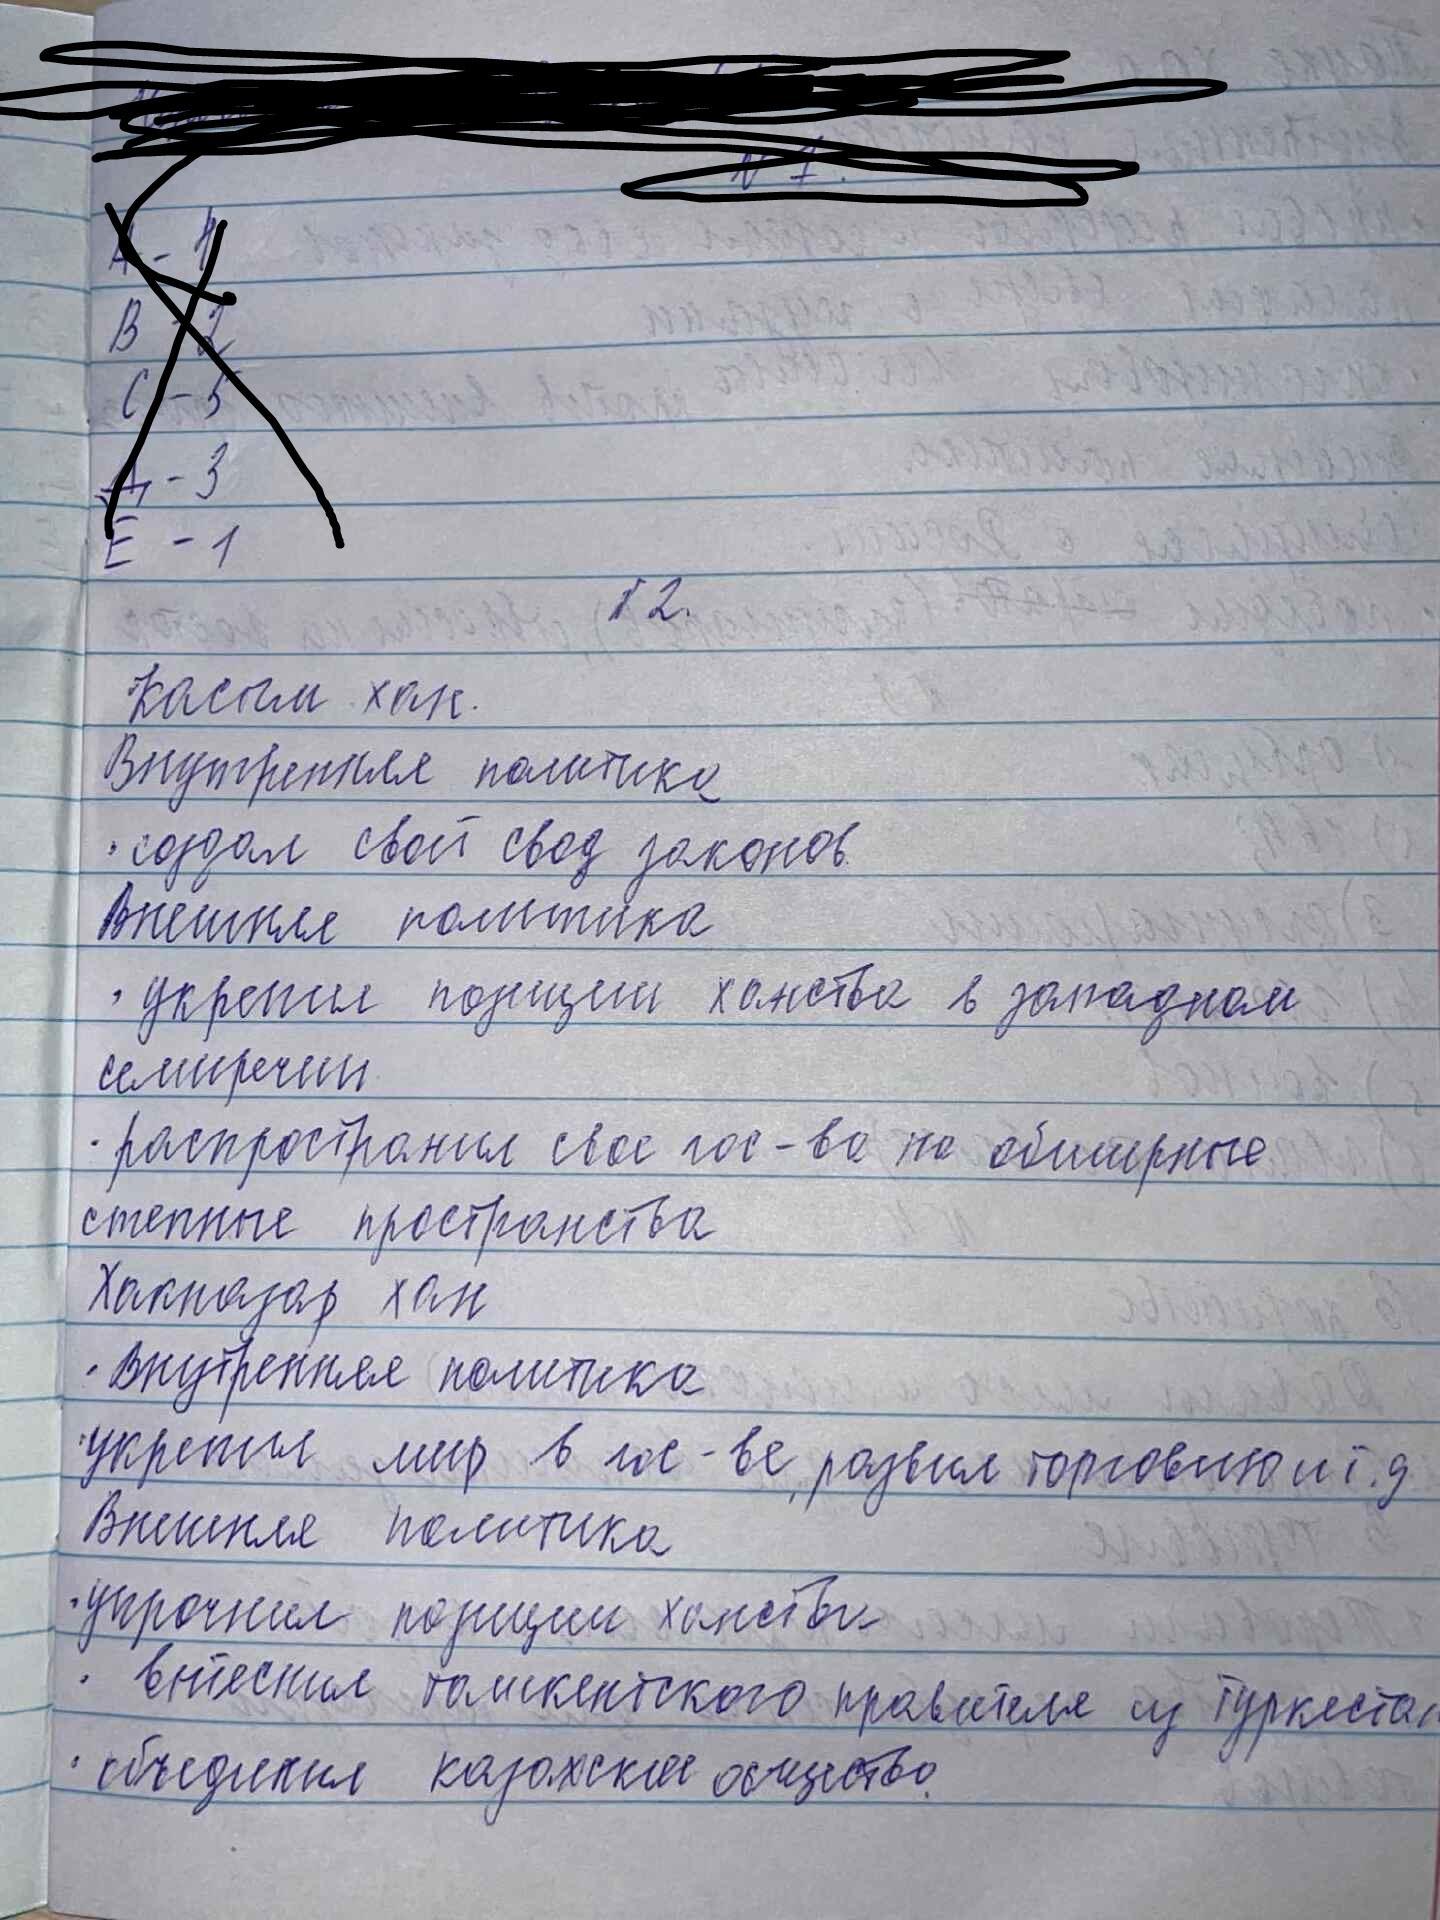 N 1.
A - 4
B - 2
C - 5
Д - 3
E - 1
N 2.
Касым хан.
Внутренняя политика
• создал свой свод законов
Внешняя политика
• укрепил позиции ханства в западном
семиречии
• распространил свое гос-во на обширные
степные пространства
Хакназар хан
• Внутренняя политика
• укрепил мир в гос-ве, развил торговлю и т.д
Внешняя политика
• упрочнил позиции ханства
• вытеснил ташкентского правителя из Туркестан
• объединил казахское общество.